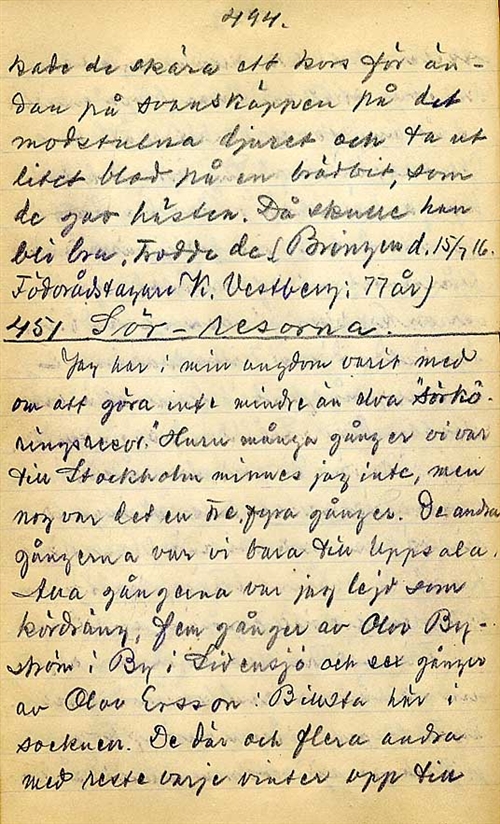 494.
kade de skära ett kors för än-
dan på svanskäppen på det
modstulna djuret och ta ut
litet blod på en brödbit, som
de gav hästen. Då skulle han
bli bra, trodde de. (Bringen d. 15/7 16.
Födorådstagare K. Vestberg: 77 år)
451 Sör-resorna.
Jag har i min ungdom varit med
om att göra inte mindre än elva "sörkö-
ringsresor." Huru många gånger vi var
till Stockholm minnes jag inte, men
nog var det en tre, fyra gånger. De andra
gångerna var vi bara till Uppsala.
Alla gångerna var jag lejd som
kördräng, fem gånger av Olov By-
ström i By i Sidensjö och sex gånger
av Olov Ersson i Billsta här i
socknen. De där och flera andra
med reste varje vinter upp till